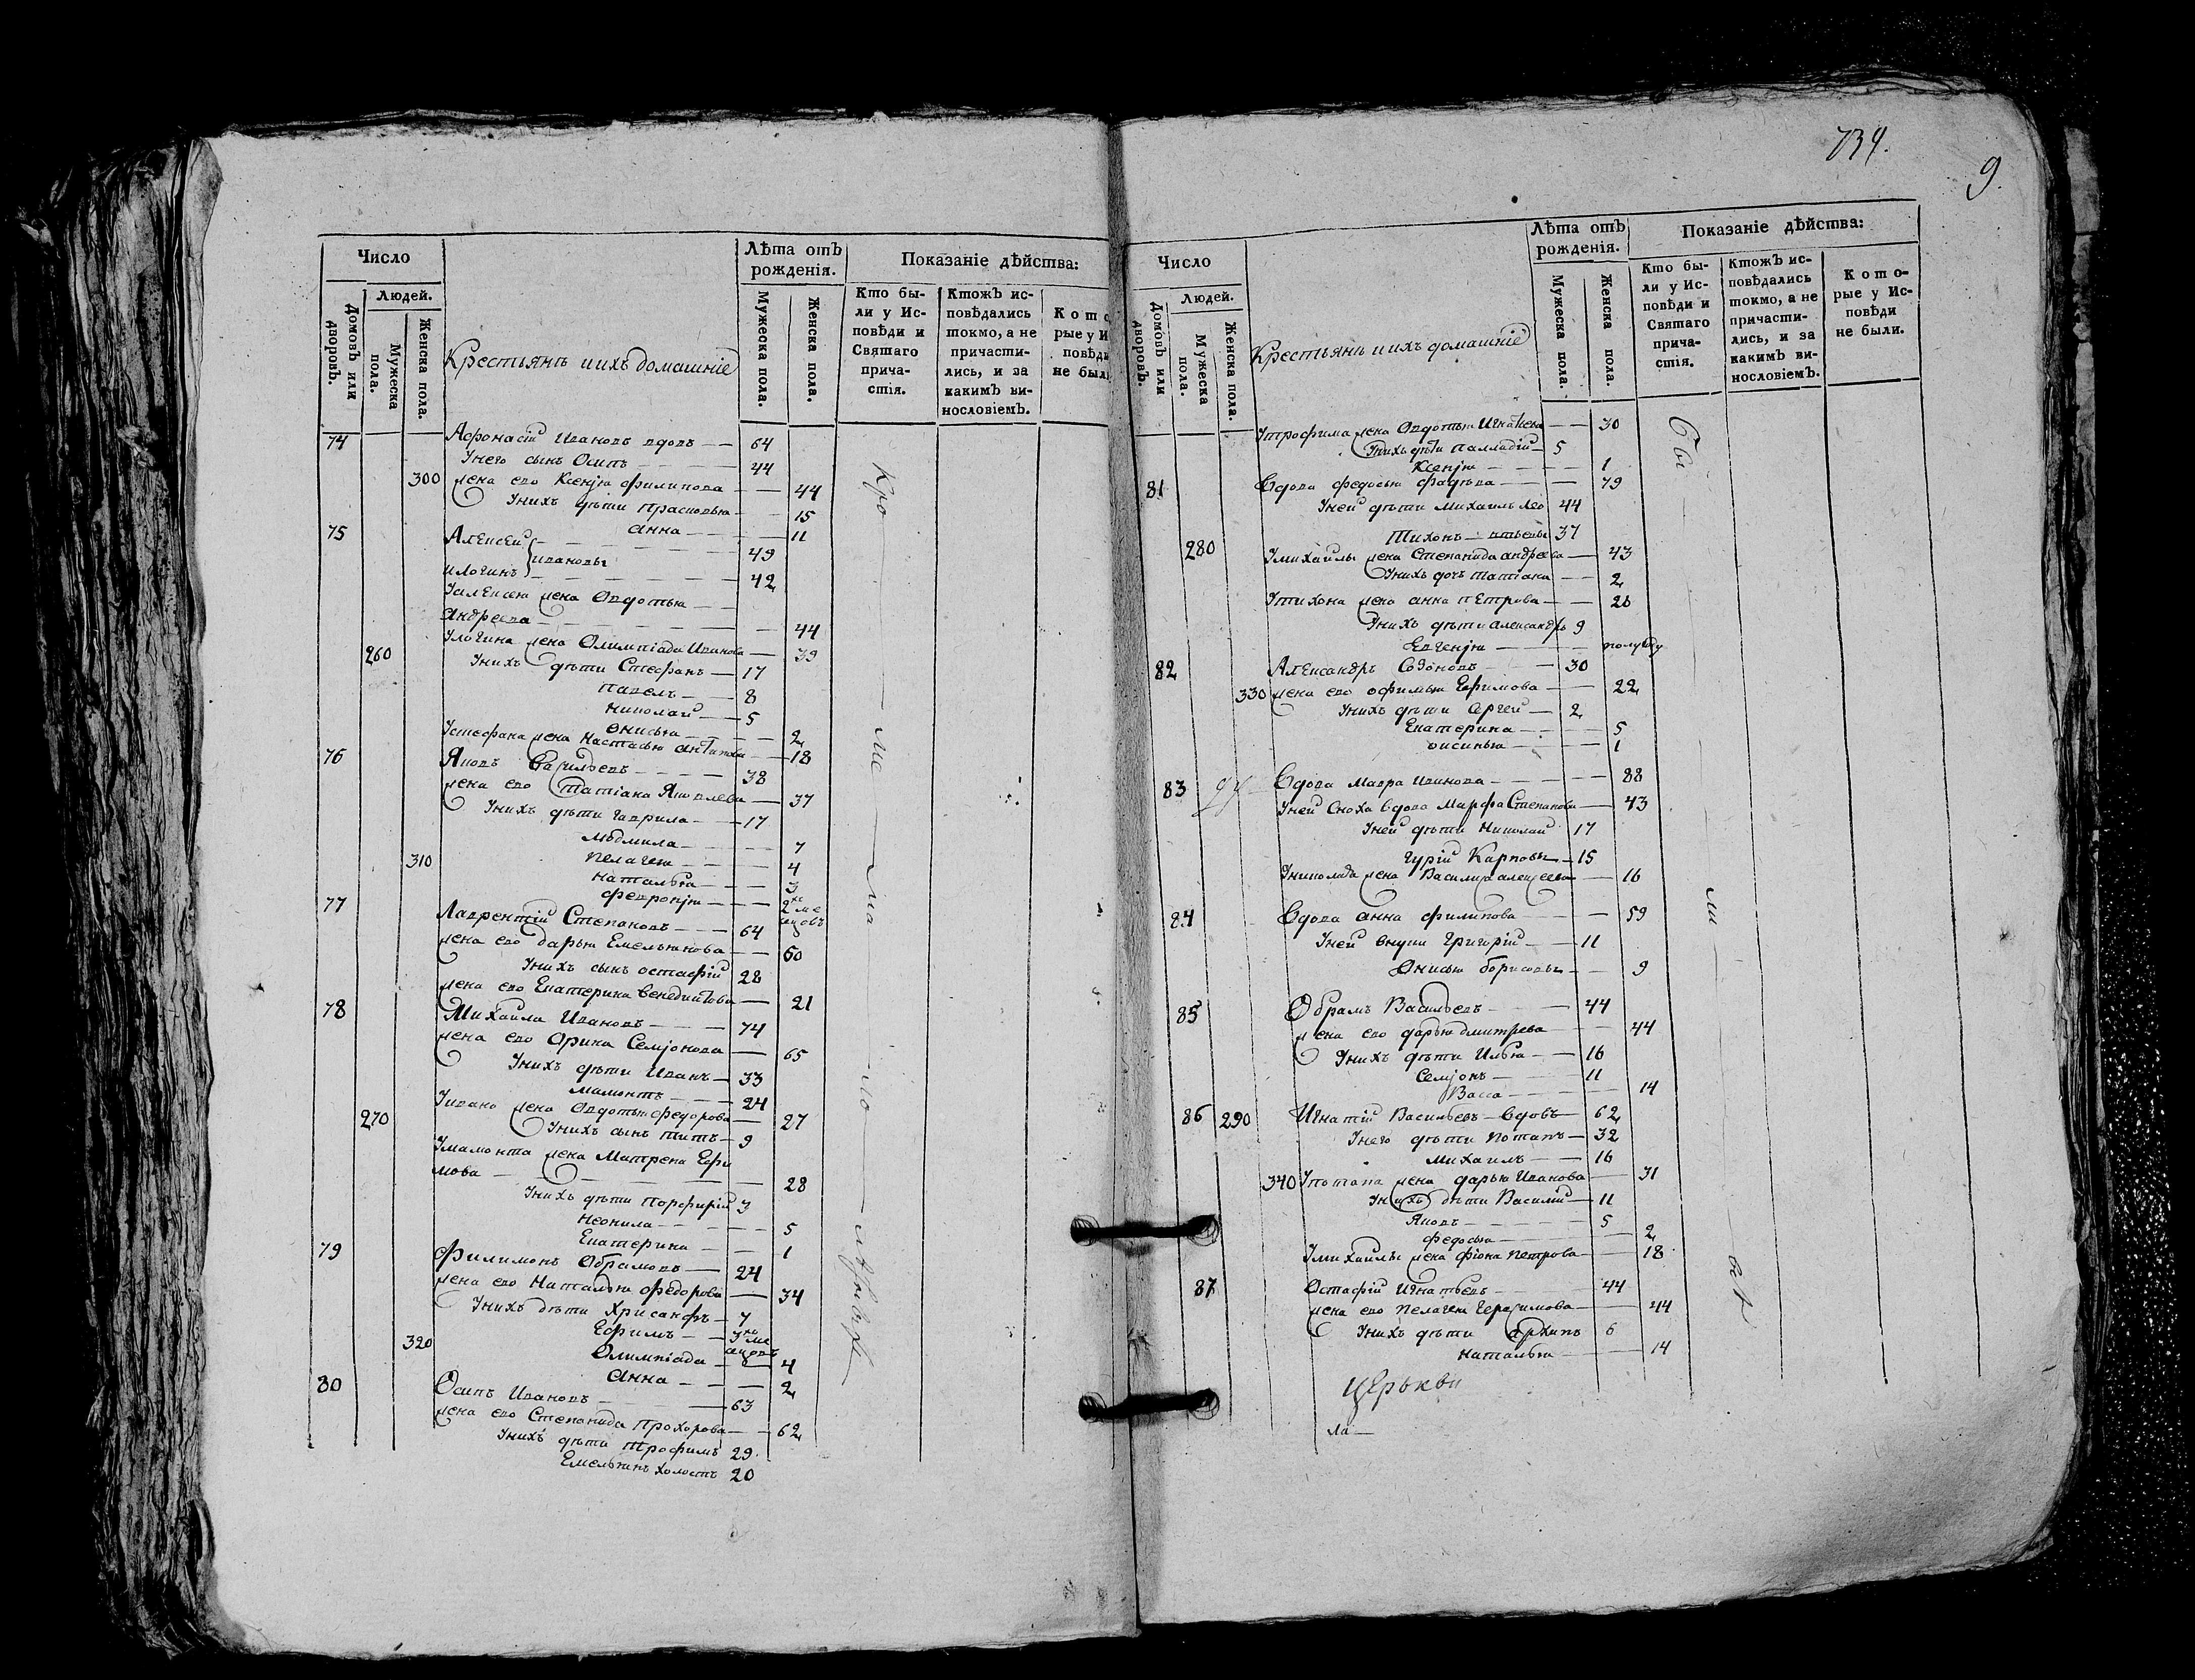 Число
Людей.
Домовъ или дворовъ.
Мужеска пола.
Женска пола.
Крестьянъ и ихъ домашніе
Лѣта отъ рожденія.
Мужеска пола.
Женска пола.
Показаніе дѣйства:
Кто бы-
ли у Ис-
повѣди и
Святаго
прича-
стія.
Ктожъ ис-
повѣдались
токмо, а не
причасти-
лись, и за
какимъ ви-
нословіемъ.
Кото
рые у И
повѣди
не были
74 Афонасій Ивановъ вдовъ — — 64
Унего сынъ Осипъ — — — — 44
300 жена ево Ксенія филипова — — 44
Унихъ дѣти Прасковья — — 15
анна — — — — 11
75 Алексей — — — — 49
Ивановы
и Логинъ — — — — 42
Уалексея жена Овдотья — —
Андреева — — — — 44
Улогина жена Олимпіада Иванова — 39
260 Унихъ дѣти Стефанъ — 17
Павелъ — — 8
Николай — — 5
Онисья — — — — 2
Устефана жена Настасья антипова — 18
76 Яковъ Васильевъ — — — — 38
жена ево Татіана Яковлева — 37
Унихъ дѣти Гаврила — — 17
Людмила — — — — 7
310 Пелагея — — — — 4
Наталья — — — 3
Феврония — — — 2хъ ме
сяцовъ
77 Лаврентій Степановъ — — — 64
жена ево дарья Емельянова — — 60
Унихъ сынъ остафій 28
жена ево Екатерина Венедиктова — 21
78 Михайла Ивановъ — — — 74
жена ево Орина Семіонова — 65
Унихъ дѣти Иванъ — 33
Мамонтъ — — — 24
Уивана жена Овдотья федорова — 27
270 Унихъ сынъ титъ — 9
Умамонта жена Матрена Ефи
мова — — — — — 28
Унихъ дѣти Порфирій 3
Неонила — — — — 5
Екатерина — — 1
79 Филимонъ Обрамовъ — — 24
жена ево Наталья Федорова — 34
Унихъ дѣти Хрисанфъ — 7
Ефимъ — — 3хъ ме
сяцовъ
320 Олимпіада — — 4
Анна — — — 2
80 Осипъ Ивановъ — — — — 63
жена ево Степанида Прохорова — — 62
Унихъ дѣти Трофимъ 29
Емельянъ холостъ 20
734.
9.
Число
Людей.
Домовъ или дворовъ.
Мужеска пола.
Женска пола.
Крестьянъ и ихъ домашніе
Лѣта отъ рожденія.
Мужеска пола.
Женска пола.
Показаніе дѣйства:
Кто бы-
ли у Ис-
повѣди и
Святаго
прича-
стія.
Ктожъ ис-
повѣдались
токмо, а не
причасти-
лись, и за
какимъ ви-
нословіемъ.
Кото-
рые у Ис-
повѣди
не были.
Утрофима жена Овдотья Игнатиева — — 30
Унихъ дѣти Палладій — 5
Ксенія — — — — 1
Бы
81 Вдова федосья — — — 79
Уней дѣти Михаилъ 44
280 Тихонъ — 37
Умихайлы жена Степанида андреева — 43
Унихъ дочь татіана — — 2
Утихона жена анна петрова — — 26
Унихъ дѣти александръ 9
Евгенія — — — — полугоду
82 Александръ Созоновъ — — — 30
330 жена ево офимья Ефимова — — 22
Унихъ дѣти Сергей — 2
Екатерина — — — — 5
— — — — 1
83 Вдова Мавра Иванова — — — — 88
Уней Сноха вдова Марфа Степанова — 43
Уней дѣти Николай 17
Гурій Карповы — 15
Униколая жена Василиса алексеева — 16
ли
84 Вдова анна филипова — — — — 59
Уней внуки Григорій — — 11
Онисья борисовы — — 9
85 Обрамъ Васильевъ — — — 44
жена ево дарья дмитрева — — 44
Унихъ дѣти Илья — — 16
Семіонъ — — — 11
Васса — — — — 14
86 290 Игнатій Васильевъ — вдовъ — 62
Унего дѣти Потапъ — 32
Михаилъ — — 16
340 Употапа жена дарья Иванова — 31
Унихъ дѣти Василій — 11
Яковъ — — — — 5
федосья — — — — 2
Умихайлы жена фіона Петрова — — 18
87 Остафій Игнатьевъ — — — 44
жена ево Пелагея Герасимова — — 44
Унихъ дѣти архипъ 6
Наталья — — — 14
церькви
ла —